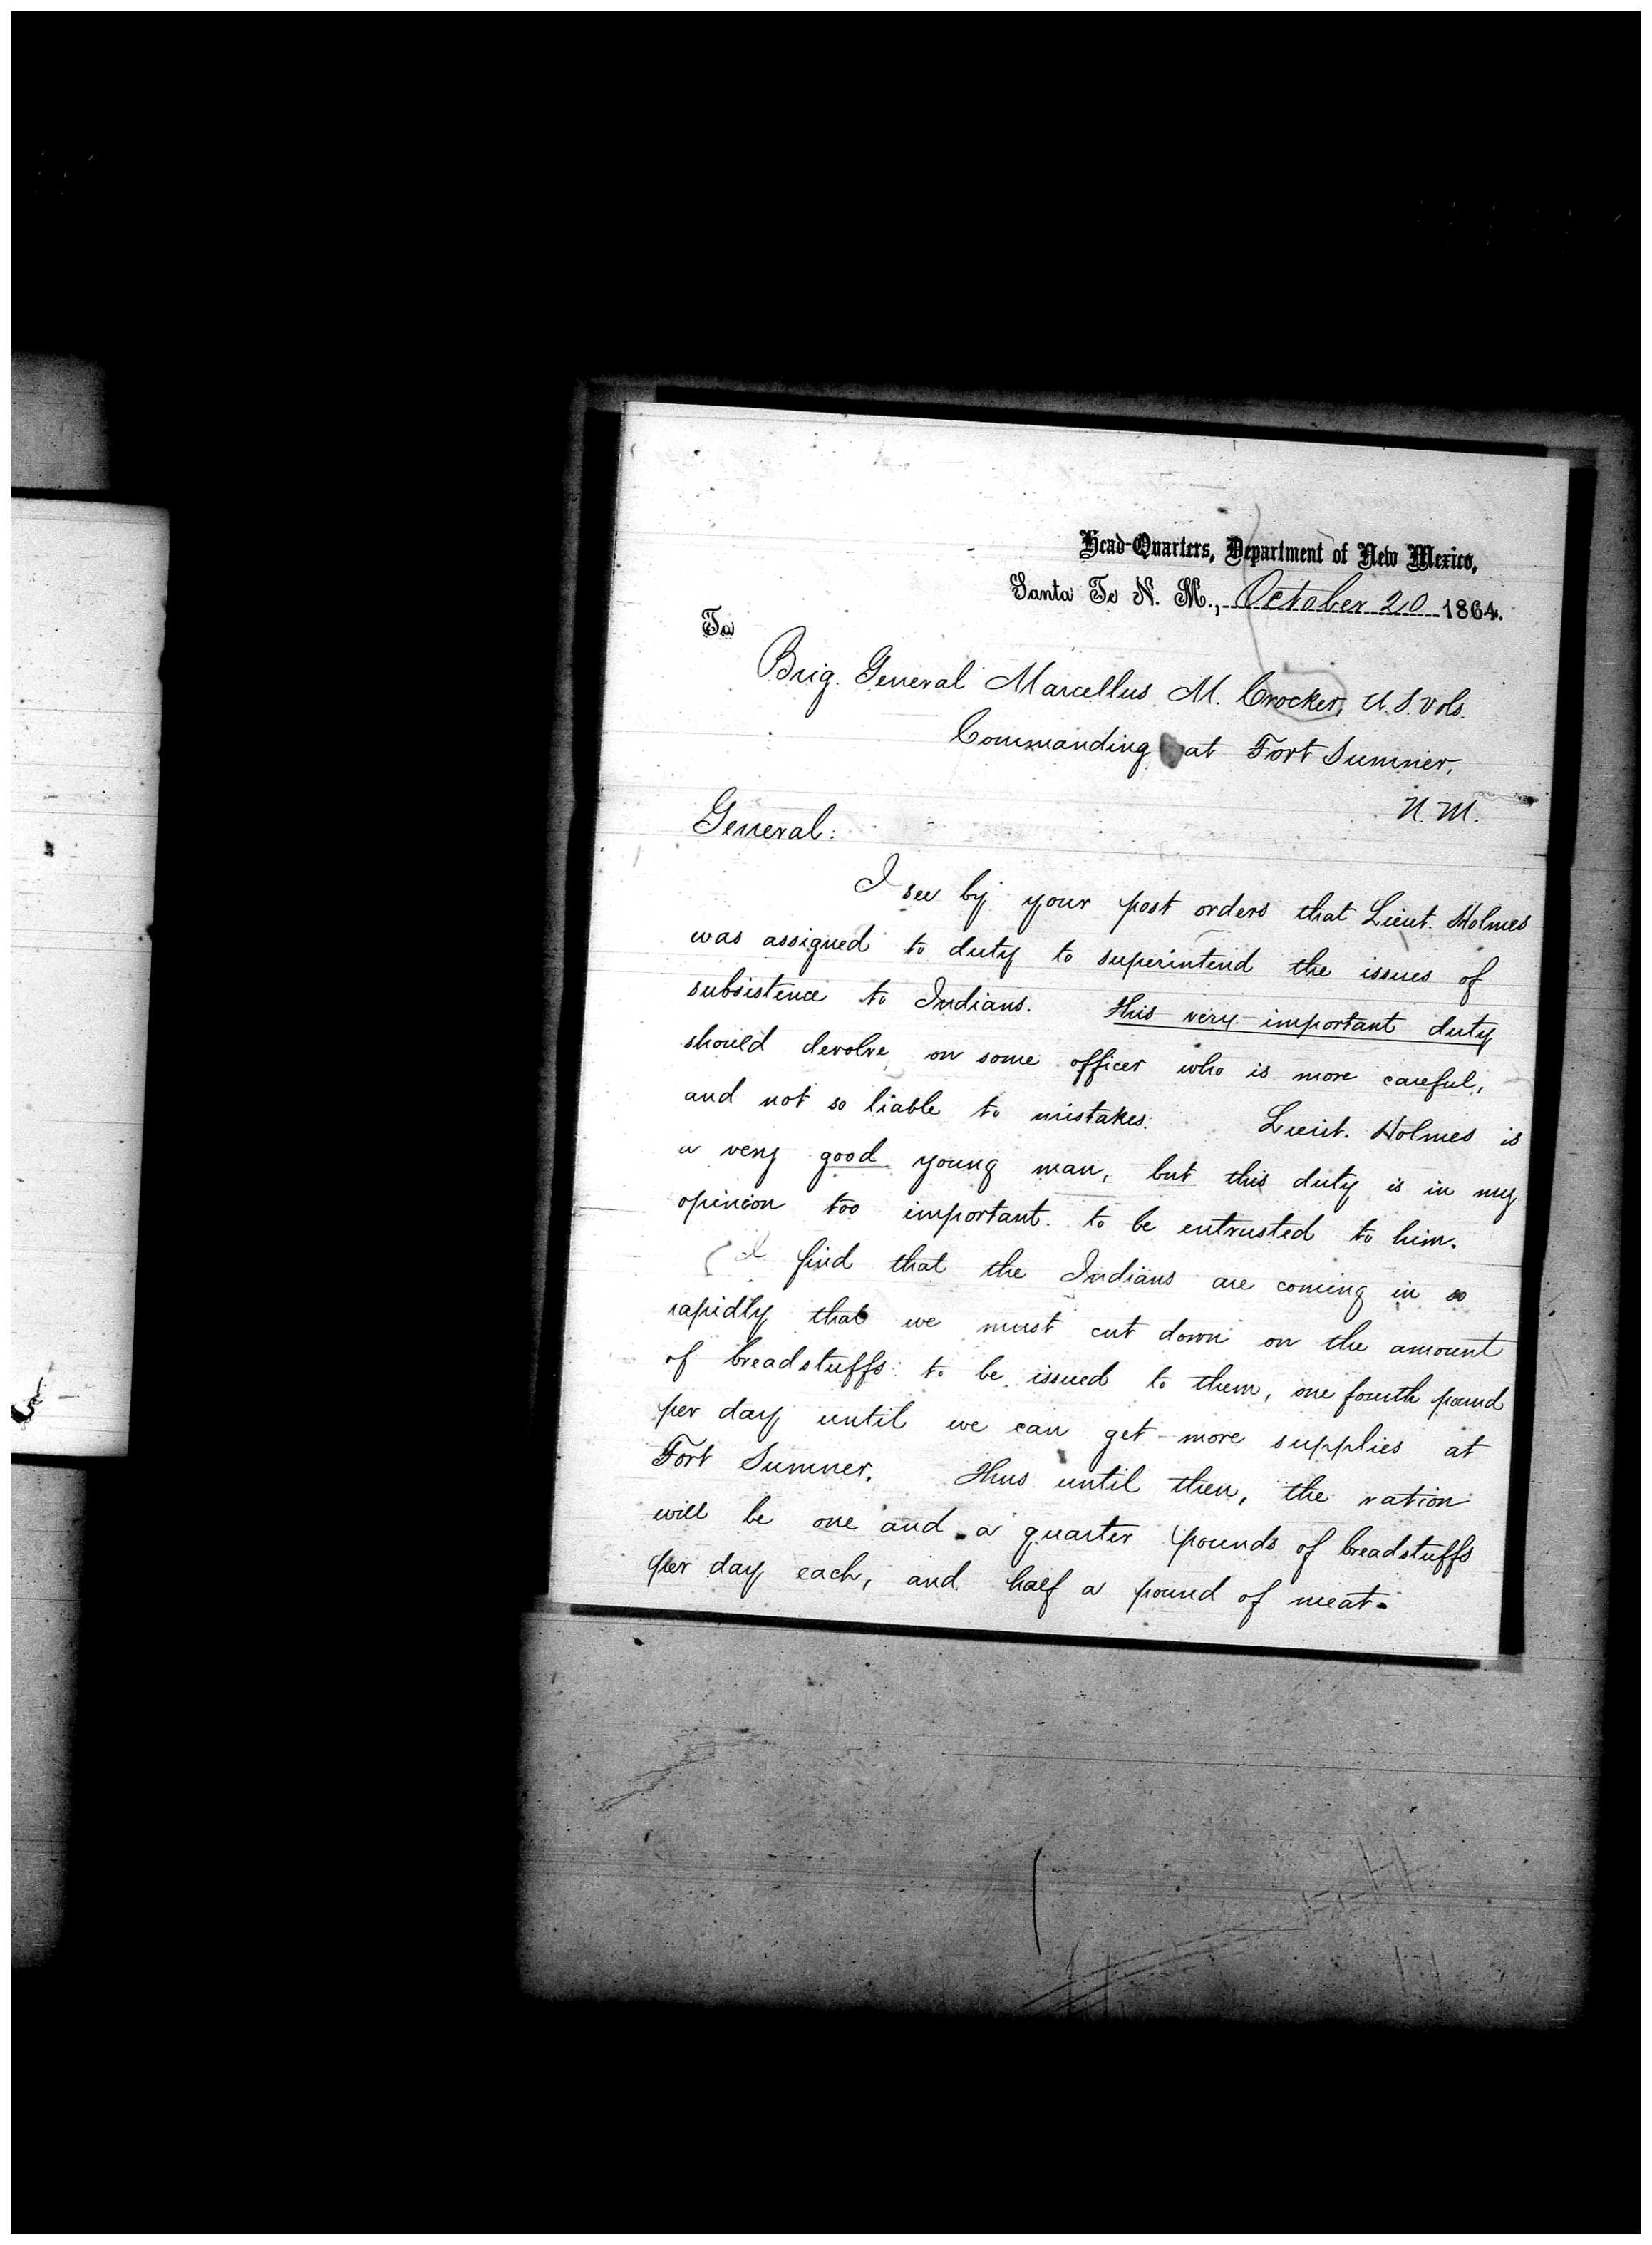 Head-Quarters, Department of New Mexico,
Santa Fe N. M., October 20 1864.
To
Brig. General Marcellus M. Crocker, U.S. Vols.
Commanding at Fort Sumner,
N. M.
General:
I see by your post orders that Lieut. Holmes
was assigned to duty to superintend the issues of
subsistence to Indians. This very important duty
should devolve on some officer who is more careful,
and not so liable to mistakes. Lieut. Holmes is
a very good young man, but this duty is in my
opinion too important to be entrusted to him.
I find that the Indians are coming in so
rapidly that we must cut down on the amount
of breadstuffs to be issued to them, one fourth pound
per day until we can get more supplies at
Fort Sumner. Thus until then, the ration
will be one and a quarter pounds of breadstuffs
per day each, and half a pound of meat.